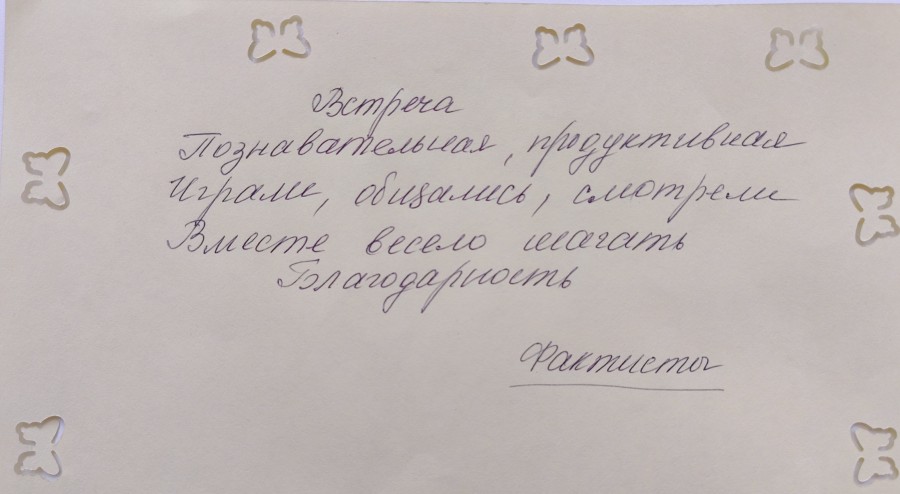 Встреча
Познавательная, продуктивная
Играли, общались, смотрели
Вместе весело шагать
Благодарность
Фактисты